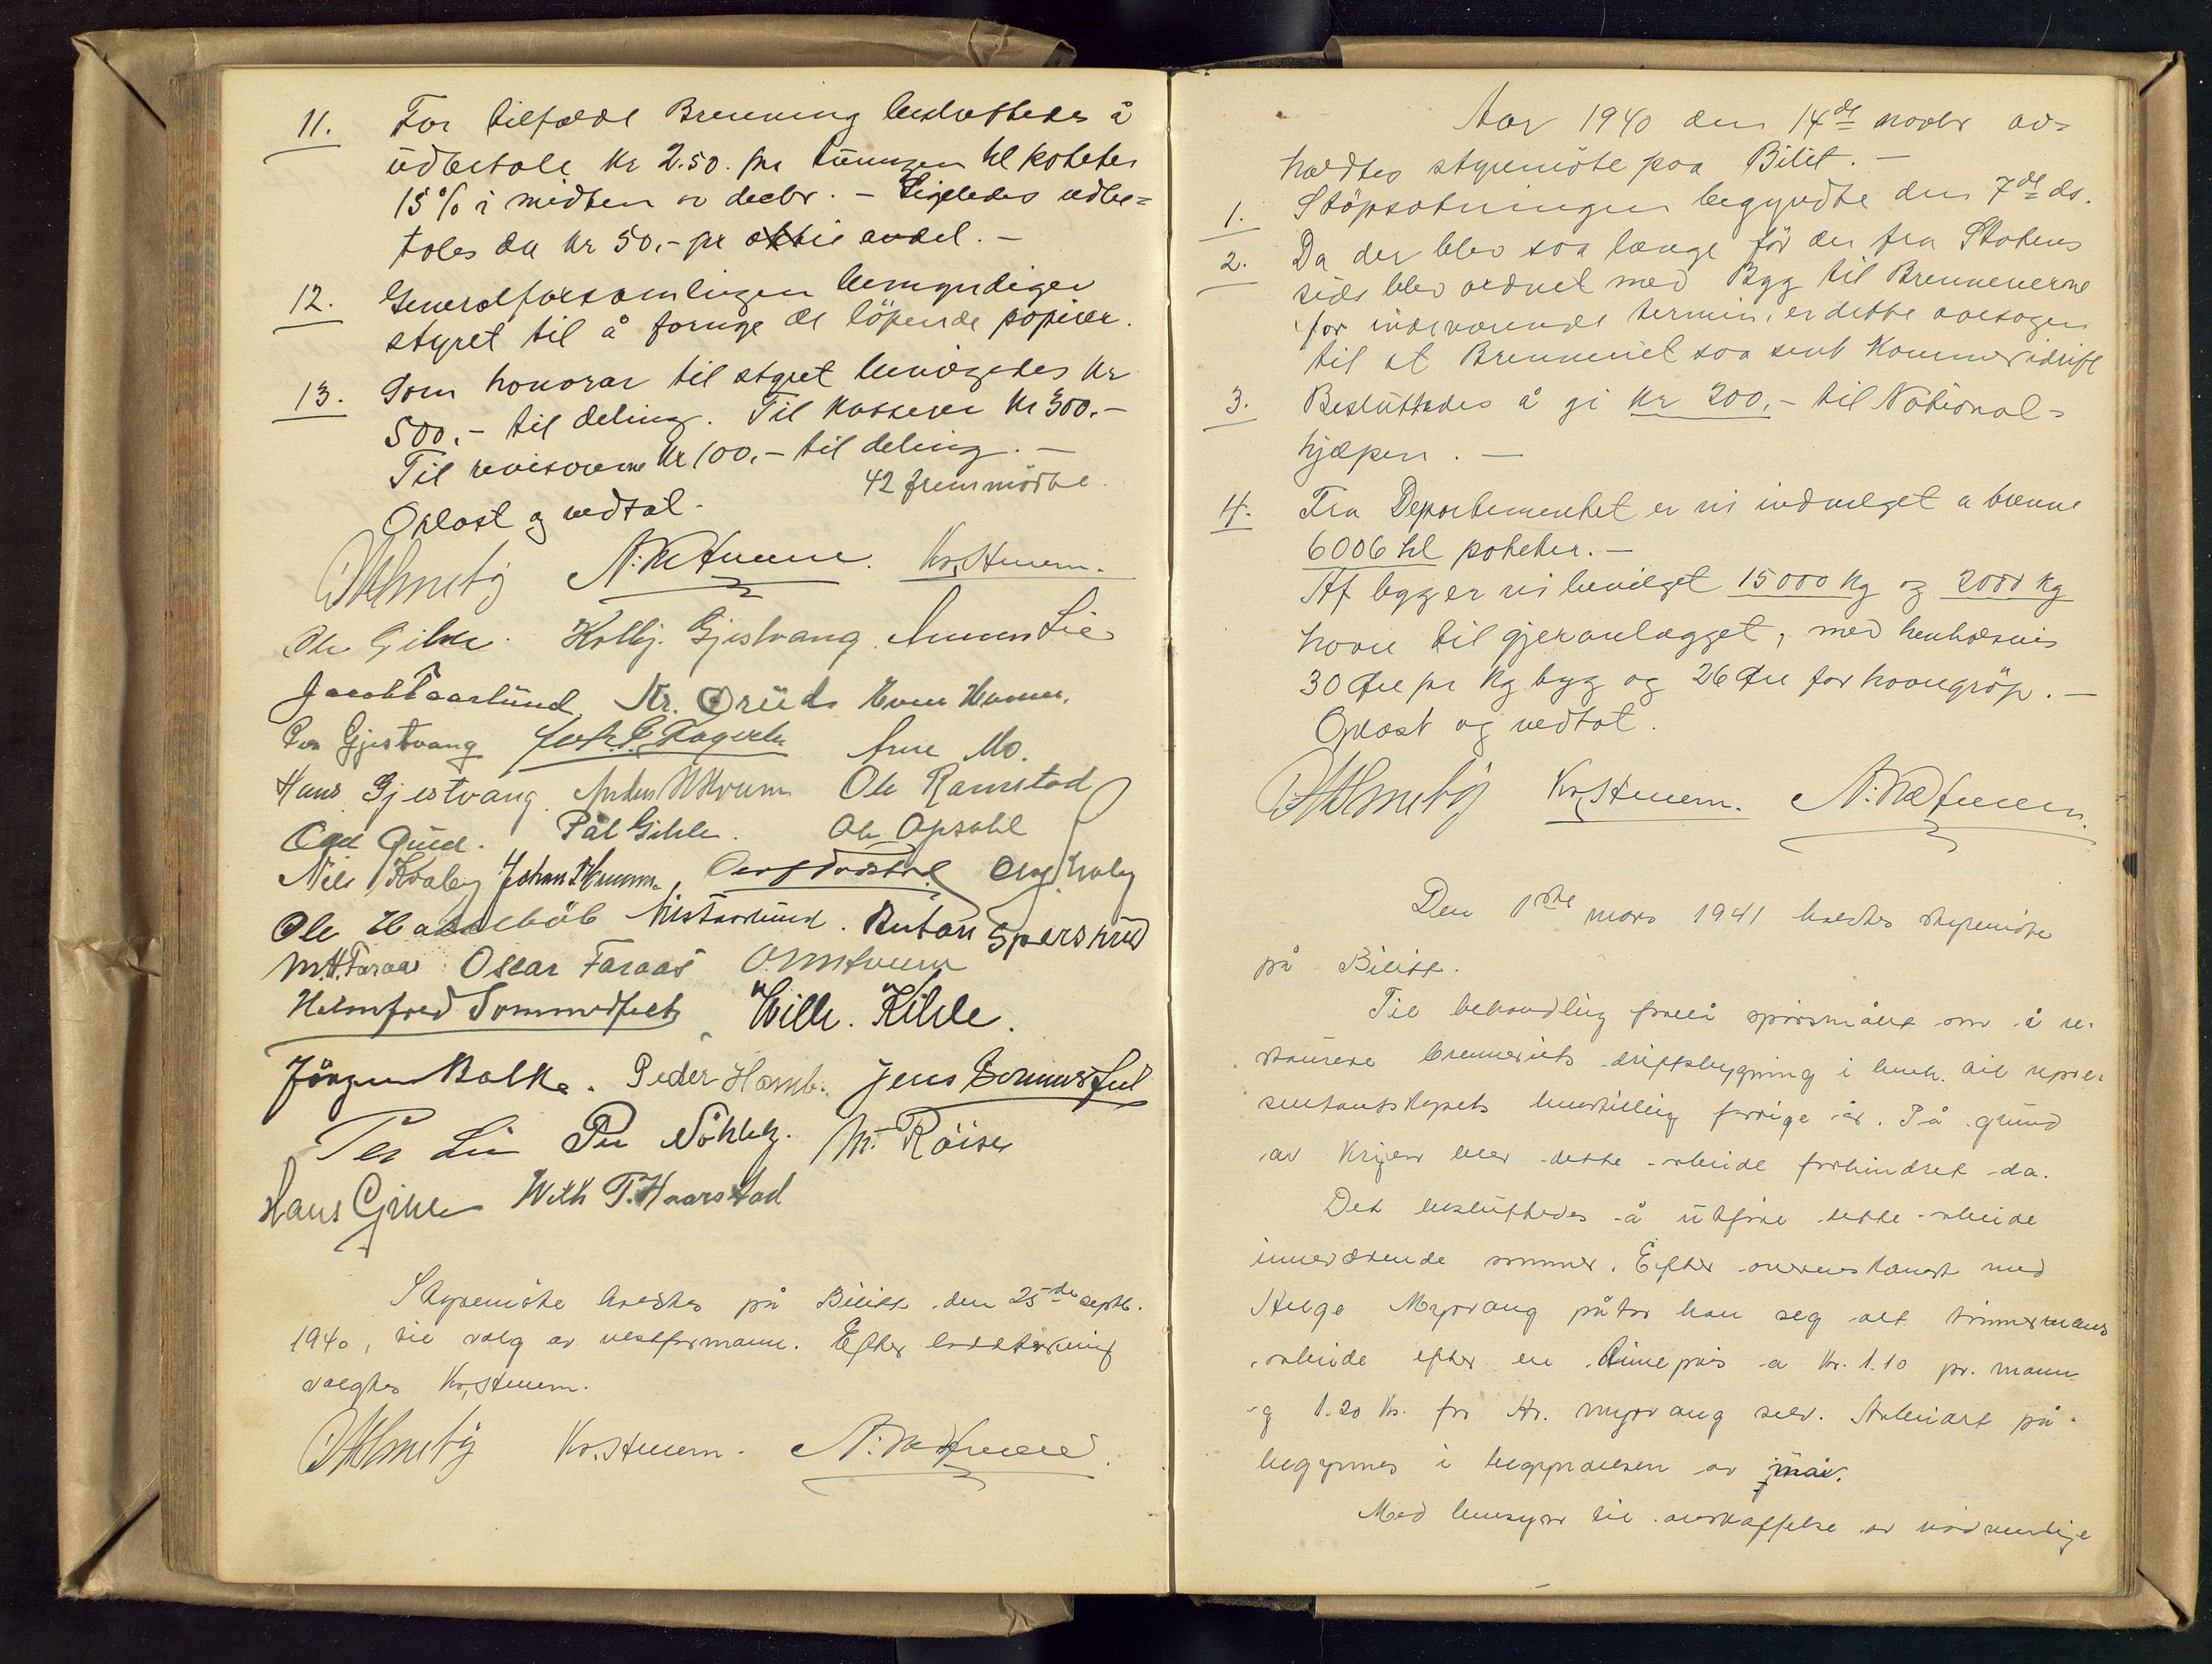 11. For tilfældt Brenning besluttedes å
udbetale kr 2.50. pr tünngen hl poteter
15% i midten av decbr. – Ligeledes udbe=
tales da kr 50.- pr aktie andel. –
12. Generalforsamlingen bemyndiger
styret til å fornye de löpende papirer.
13. Som honorar til styret bevilgedes kr
500.- til deling. Til kasserer kr 300.-
Til revisorerne kr 100.- til deling. –
42 fremmödte.
Oplæst og vedtat.
Kr. Stuem.
Ole Gihle. Kolbj. Gjestvang. Lie
Jacob Paarlund Kr. Grüd
Gjestvang Arne Mo.
Hans Gjestvang. Ole Ramstad
Pål Gihle. Ole Opsahl
Nils Kvaby Johan
Ole Anton Sperstrud
M.H. Faraas Oscar Faraas
Helmfred Sommerfelt Wilh. Kihle.
Jörgen Balke. Peder Jens Sommerfeld
Per Lie Per M. Röise
Hans Gihle Wilh T. Haarstad
Styremöte holdtes på Bilitt den 25de septb.
1940, til valg av viseformann. Efter loddtrekning
valgtes Kr. Stuem.
Kr. Stuem.
Aar 1940 den 14de novbr av=
holdtes styremöte paa Bilit. –
1. Stöpsætningen begyndte den 7de ds.
2. Da der blev saa længe för der fra Statens
side blev ordnet med Byg til Brennerierne
for indeværende termin, er dette aarsagen
til at Brenneriet saa sent kommer i drift
3. Besluttedes å gi kr 200.- til National=
hjælpen. –
4. Fra Departementet er vi indvilget a brenne
6006 hl poteter. –
Af byg er vi bevilget 15000 kg og 2000 kg
havre til gjæranlægget, med henholdsvis
30 Øre pr kg byg og 26 Øre for havregröp. –
Oplæst og vedtat.
Kr. Stuem.
Den 1ste mars 1941 holdtes styremöte
på Bilitt.
Til behandling forelå spörsmålet om å re-
staurere brenneriets driftsbygning i henh. til repre-
sentantskapets innstilling forrige år. På grund
av krigen blev dette arbeide forhindret da.
Det besluttedes å utföre dette arbeide
inneværende sommer. Efter overenskomst med
Helge Myrvang påtar han seg alt tömmermans
arbeide efter en timepris a kr. 1.10 pr. mann
og 1.20 kr. for Hr. Myrvang selv. Arbeidet på-
begynnes i begynnelsen av mai.
Med hensyn til anskaffelse av nödvendige